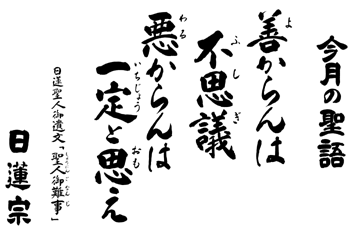 今月の聖語
善からんは
不思議
悪からんは
一定と思え
日蓮聖人御遺文「聖人御難事」
日蓮宗